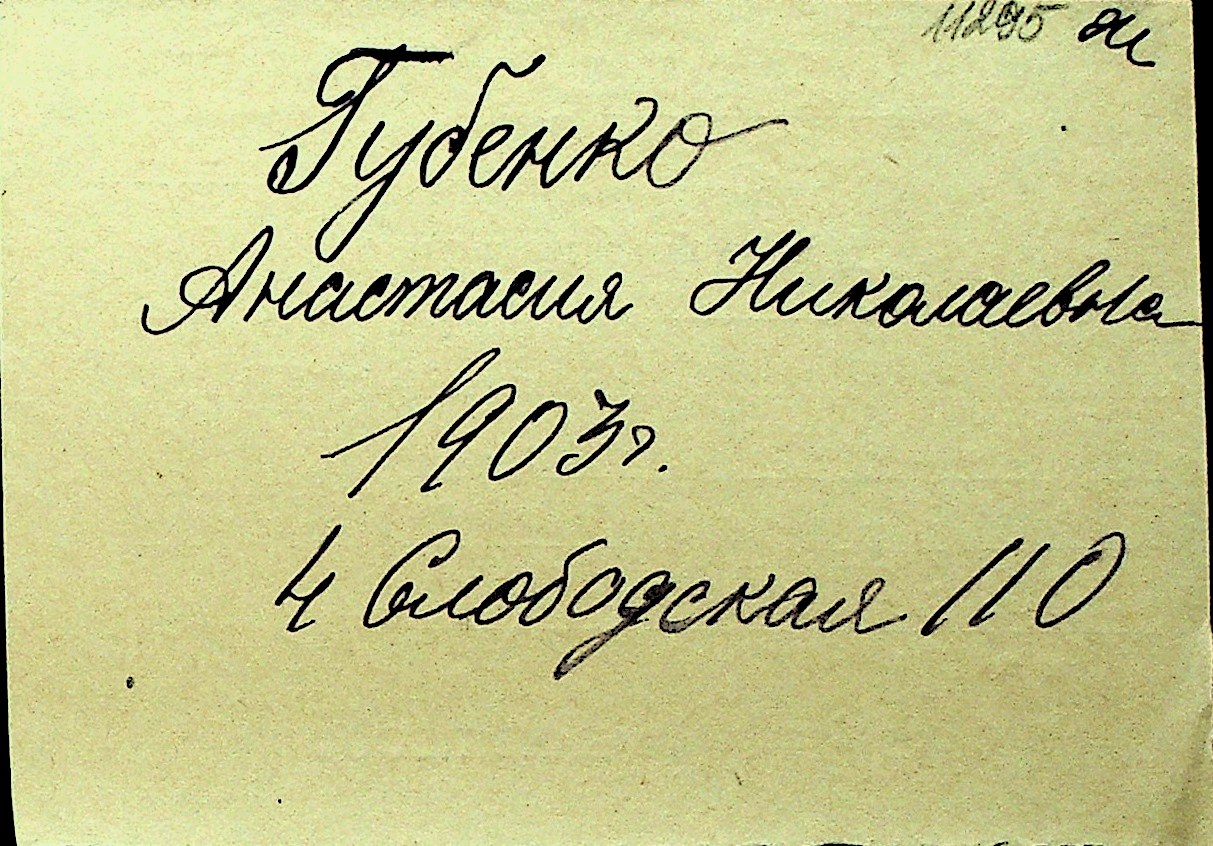 11295 ж
Губенко
Анастасия Николаевна
1903г.
4 Слободская 110